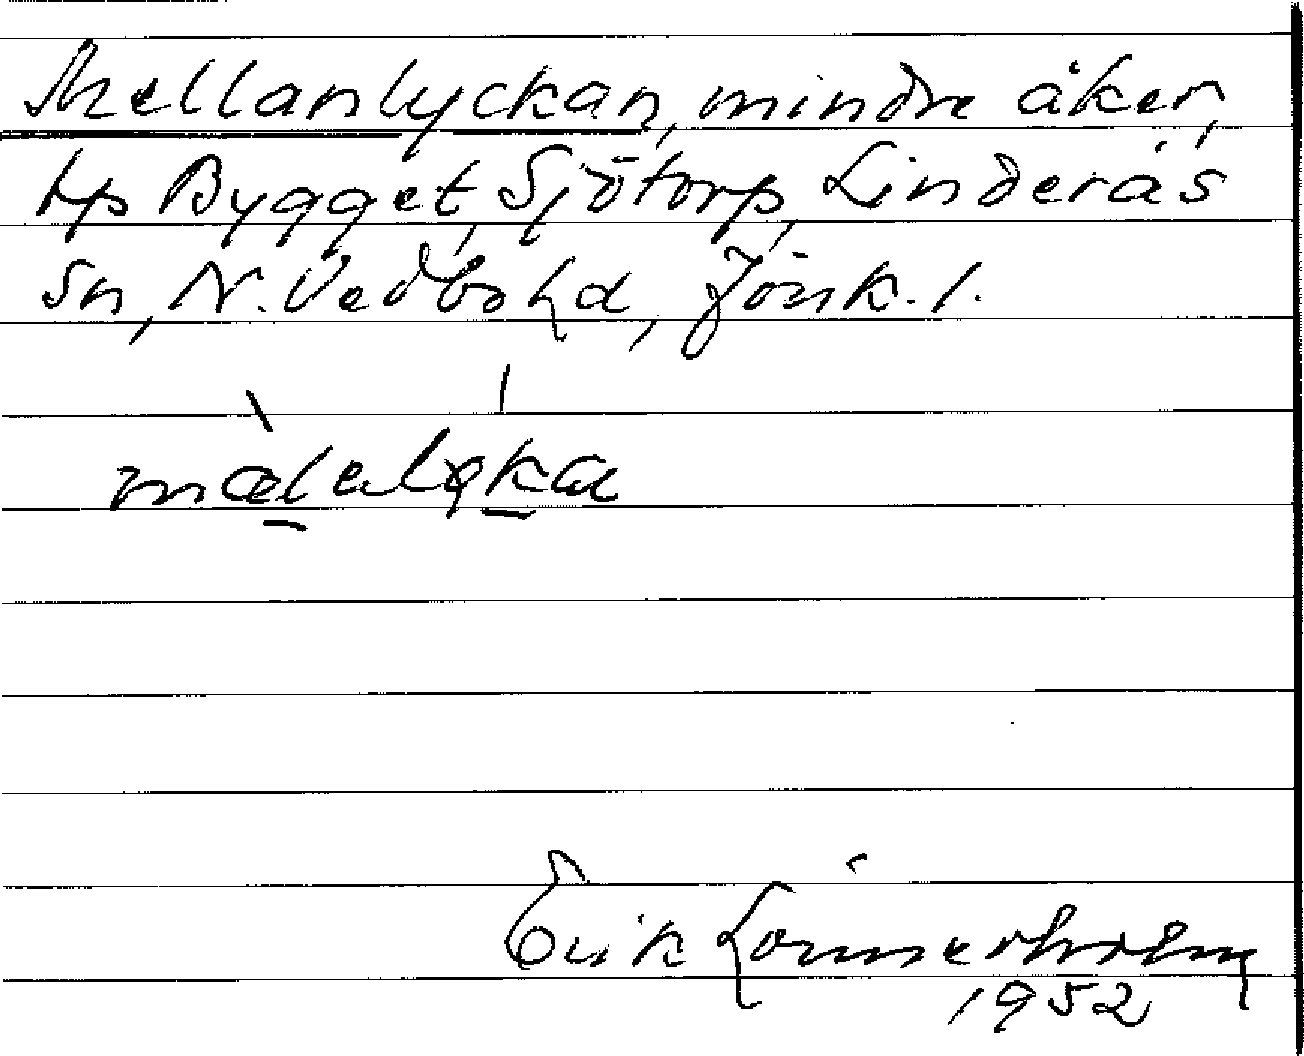 Mellanlyckan, mindre åker,
tp Bygget, Sjötorp, Linderås
sn, N. Vedbo hd, Jönk. l.
mælalyka
Erik Lönnerholm
1952